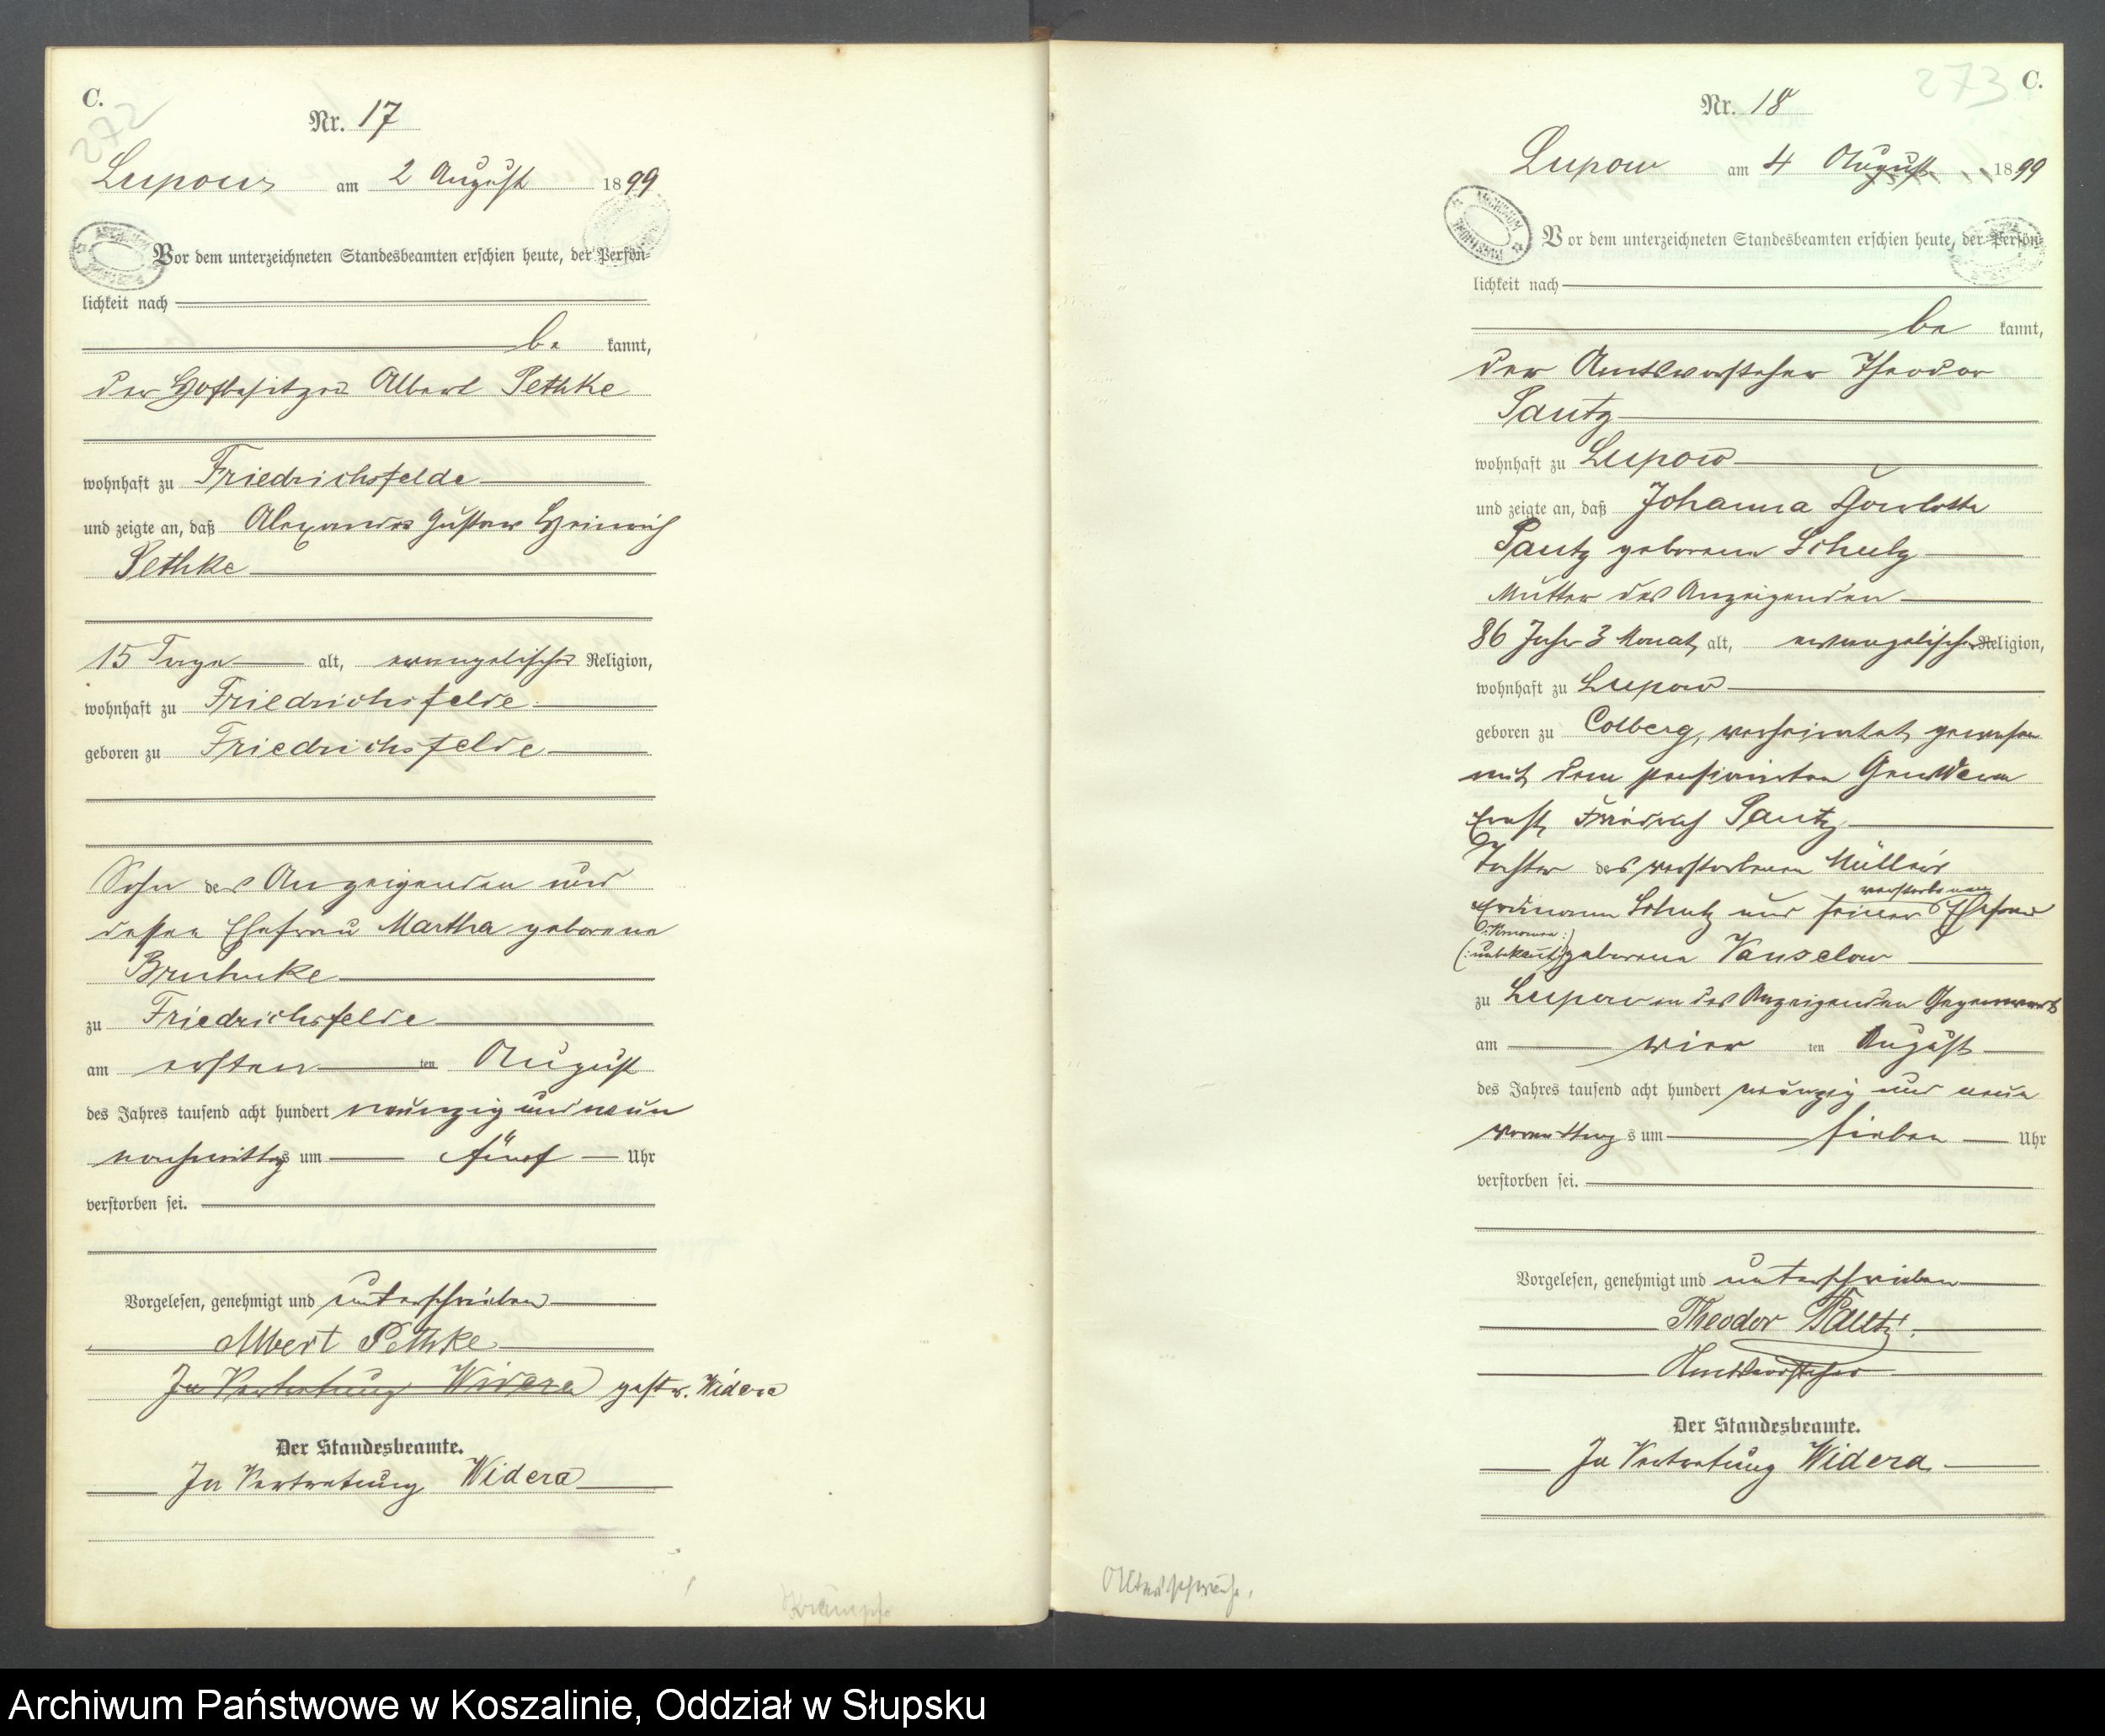 C.
272
Nr. 17
Lupow am 2 August 1899
Vor dem unterzeichneten Standesbeamten erschien heute, der Persön-
lichkeit nach
be kannt,
der Hofbesitzer Albert Pethke
wohnhaft zu Friedrichsfelde
und zeigte an, daß Alexander Gustav Heinrich
Pethke
15 Tage alt, evangelischer Religion,
wohnhaft zu Friedrichsfelde
geboren zu Friedrichsfelde
Sohn des Anzeigenden und
dessen Ehefrau Martha geborene
zu Friedrichsfelde
am ersten ten August
des Jahres tausend acht hundert neunzig und neun
nachmittags um fünf Uhr
verstorben sei.
Vorgelesen, genehmigt und unterschrieben
Albert Pethke
In Vertretung Widera gestr. Widera
Der Standesbeamte.
In Vertretung Widera
Krämpfe
273
C.
Nr. 18
Lupow am 4 August 1899
ARCHIWUM
Vor dem unterzeichneten Standesbeamten erschien heute, der Persön-
lichkeit nach
be kannt,
der Amtsvorsteher Theodor
Pautz
wohnhaft zu Lupow
und zeigte an, daß Johanna
Pautz geborene Schulz
Mutter des Anzeigenden
86 Jahr 3 Monat alt, evangelischer Religion,
wohnhaft zu Lupow
geboren zu Colberg, verheiratet gewesen
mit dem pensionirten Gendarm
Ernst Friedrich Pautz
Tochter des verstorbenen Müllers
verstorbenen
Erdmann Schulz und seiner Ehefrau
(:Vorname:)
(:unbekannt:) geborene Vanselow
zu Lupow in des Anzeigenden Gegenwart
am vier ten August
des Jahres tausend acht hundert neunzig und neun
vormittags um sieben Uhr
verstorben sei.
Vorgelesen, genehmigt und unterschrieben
Theodor Pautz.
Amtsvorsteher
Der Standesbeamte.
In Vertretung Widera
Altersschwäche.
Archiwum Państwowe w Koszalinie, Oddział w Słupsku